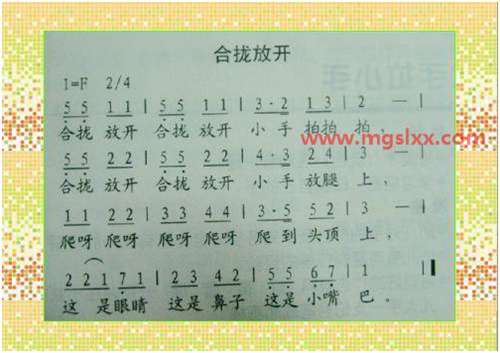 合拢放开
1=F 2/4
5 5 1 1 | 5 5 1 1 | 3·2 1 3 | 2 — |
合拢 放开 合拢 放开 小 手 拍拍 拍，
www.mgslxx.com
5 5 2 2 | 5 5 2 2 | 4·3 2 4 | 3 — |
合拢 放开 合拢 放开 小 手 放腿 上，
1 1 2 2 | 3 3 4 4 | 3·5 5 2 | 3 — |
爬呀 爬呀 爬呀 爬呀 爬 到 头顶 上，
2 2 1 7 1 | 2 3 4 2 | 5 5 6 7 | 1 ‖
这 是 眼睛 这是 鼻子 这是 小嘴 巴。